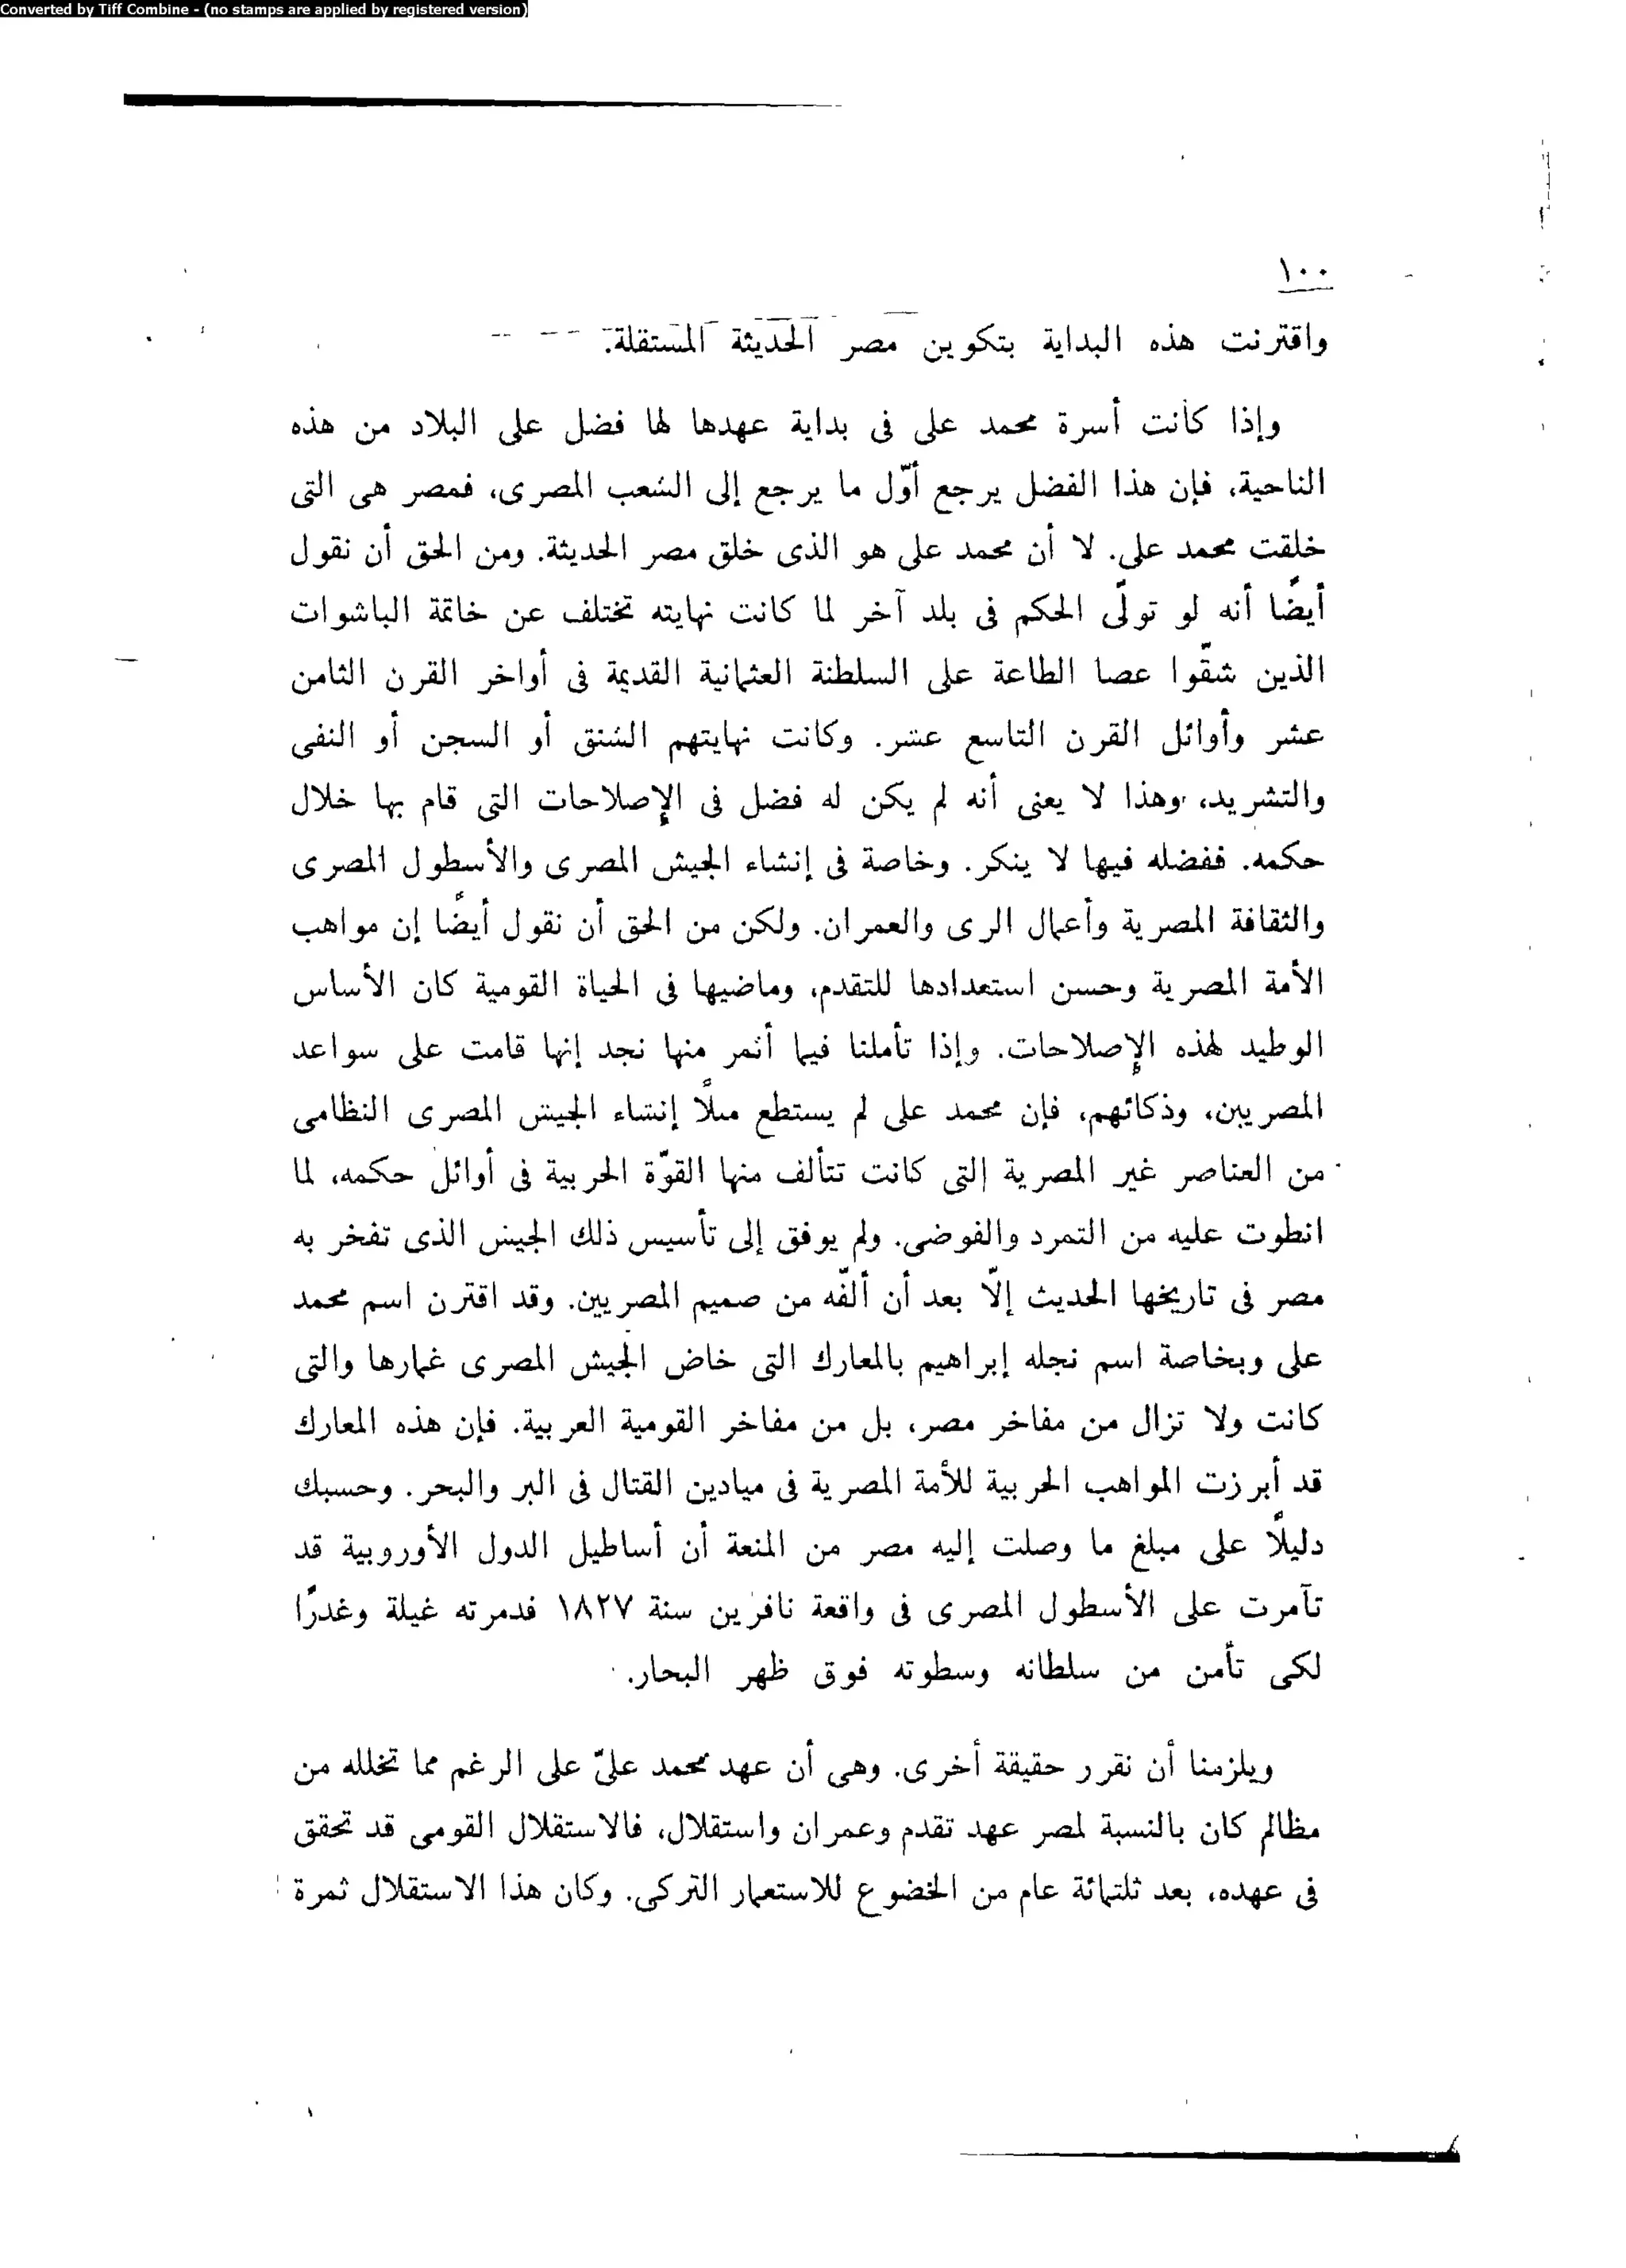 Converted by Tiff Combine - (no stamps are applied by registered version)
١٠٠
واقترنت هذه البداية بتكوين مصر الحديثة المستقلة.
وإذا كانت أسرة محمد على فى بداية عهدها لها فضل على البلاد من هذه
الناحية، فإن هذا الفضل يرجع أوّل ما يرجع إلى الشعب المصرى، فمصر هى التى
خلقت محمد على. لا أن محمد على هو الذى خلق مصر الحديثة. ومن الحق أن نقول
أيضًا أنه لو تولّى الحكم فى بلد آخر لما كانت نهايته تختلف عن خاتمة الباشوات
الذين شقّوا عصا الطاعة على السلطنة العثمانية القديمة فى أواخر القرن الثامن
عشر وأوائل القرن التاسع عشر. وكانت نهايتهم الشنق أو السجن أو النفى
والتشريد، وهذا لا يعنى أنه لم يكن له فضل فى الإصلاحات التى قام بها خلال
حكمه. ففضله فيها لا ينكر. وخاصة فى إنشاء الجيش المصرى والأسطول المصرى
والثقافة المصرية وأعمال الرى والعمران. ولكن من الحق أن نقول أيضًا إن مواهب
الأمة المصرية وحسن استعدادها للتقدم، وماضيها فى الحياة القومية كان الأساس
الوطيد لهذه الإصلاحات. وإذا تأملنا فيما أثمر منها نجد إنها قامت على سواعد
المصريين، وذكائهم، فإن محمد على لم يستطع مثلاً إنشاء الجيش المصرى النظامى
من العناصر غير المصرية التى كانت تتألف منها القوّة الحربية فى أوائل حكمه، لما
انطوت عليه من التمرد والفوضى. ولم يوفق إلى تأسيس ذلك الجيش الذى تفخر به
مصر فى تاريخها الحديث إلّا بعد أن ألفّه من صميم المصريين. وقد اقترن اسم محمد
على وبخاصة اسم نجله إبراهيم بالمعارك التى خاض الجيش المصرى غمارها والتى
كانت ولا تزال من مفاخر مصر، بل من مفاخر القومية العربية. فإن هذه المعارك
قد أبرزت المواهب الحربية للأمة المصرية فى ميادين القتال فى البر والبحر. وحسبك
دليلًا على مبلغ ما وصلت إليه مصر من المنعة أن أساطيل الدول الأوروبية قد
تآمرت على الأسطول المصرى فى واقعة نافرين سنة ١٨٢٧ فدمرته غيلة وغدرًا
لكى تأمن من سلطانه وسطوته فوق ظهر البحار.
ويلزمنا أن نقرر حقيقة أخرى. وهى أن عهد محمد علىّ على الرغم مما تخلله من
مظالم كان بالنسبة لمصر عهد تقدم وعمران واستقلال، فالاستقلال القومى قد تحقق
فى عهده، بعد ثلثمائة عام من الخضوع للاستعمار التركى. وكان هذا الاستقلال ثمرة